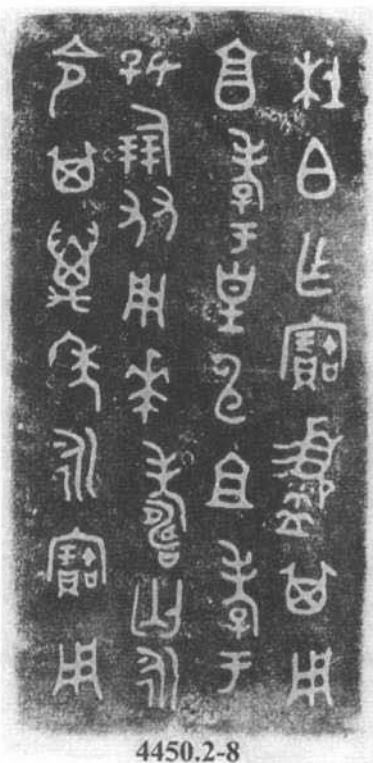 杜白乍寶盨其用
亯孝于皇申且考于
好倗友用𠦪壽匄永
令其萬年永寶用
4450.2-8